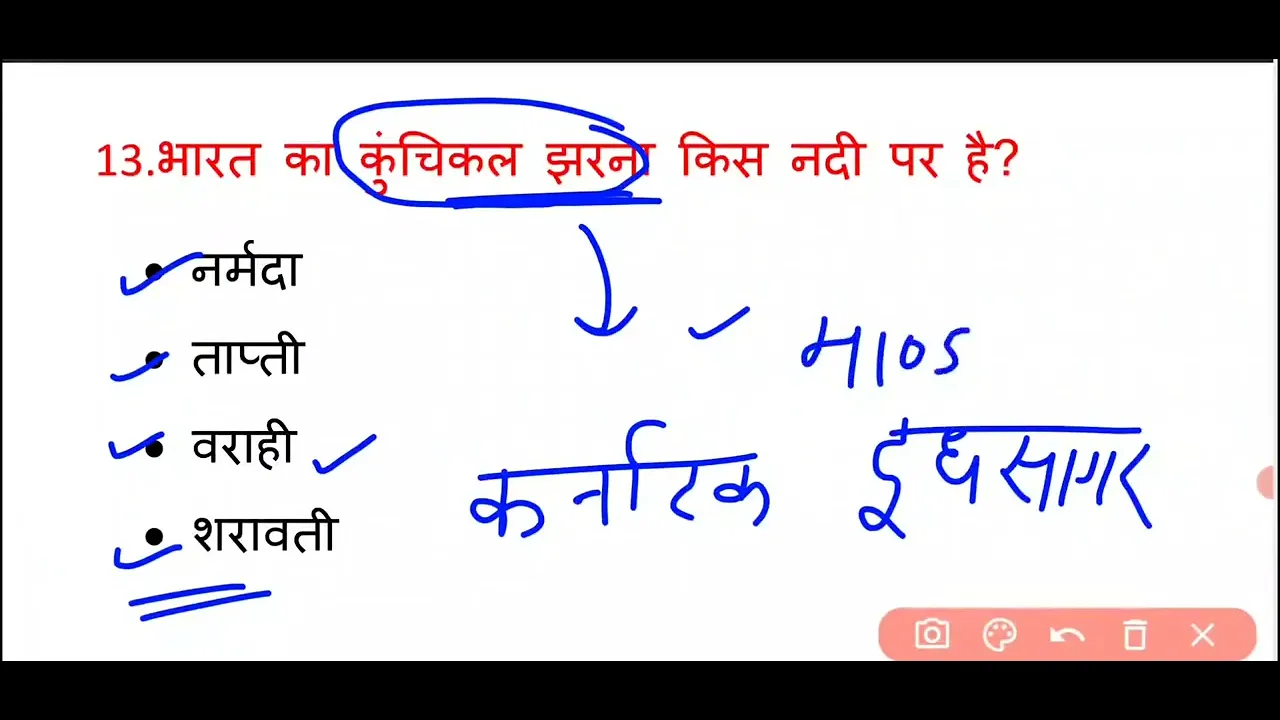 13.भारत का कुंचिकल झरना किस नदी पर है?
• नर्मदा
• ताप्ती
• वराही
• शरावती
कर्नाटक